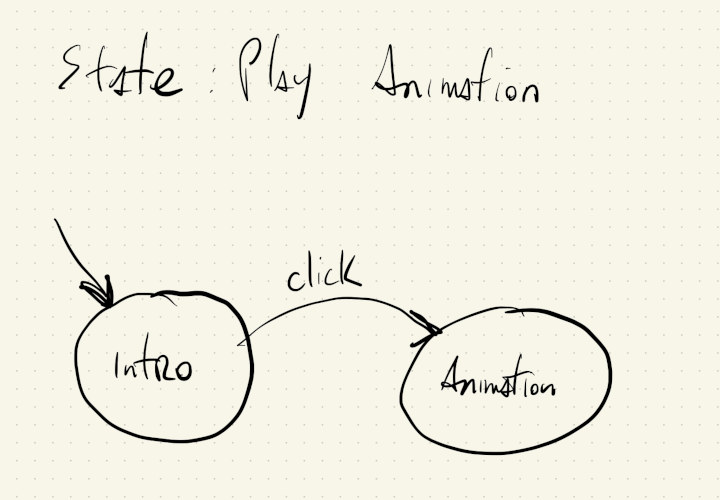 State : Play Animation
click
Intro
Animation